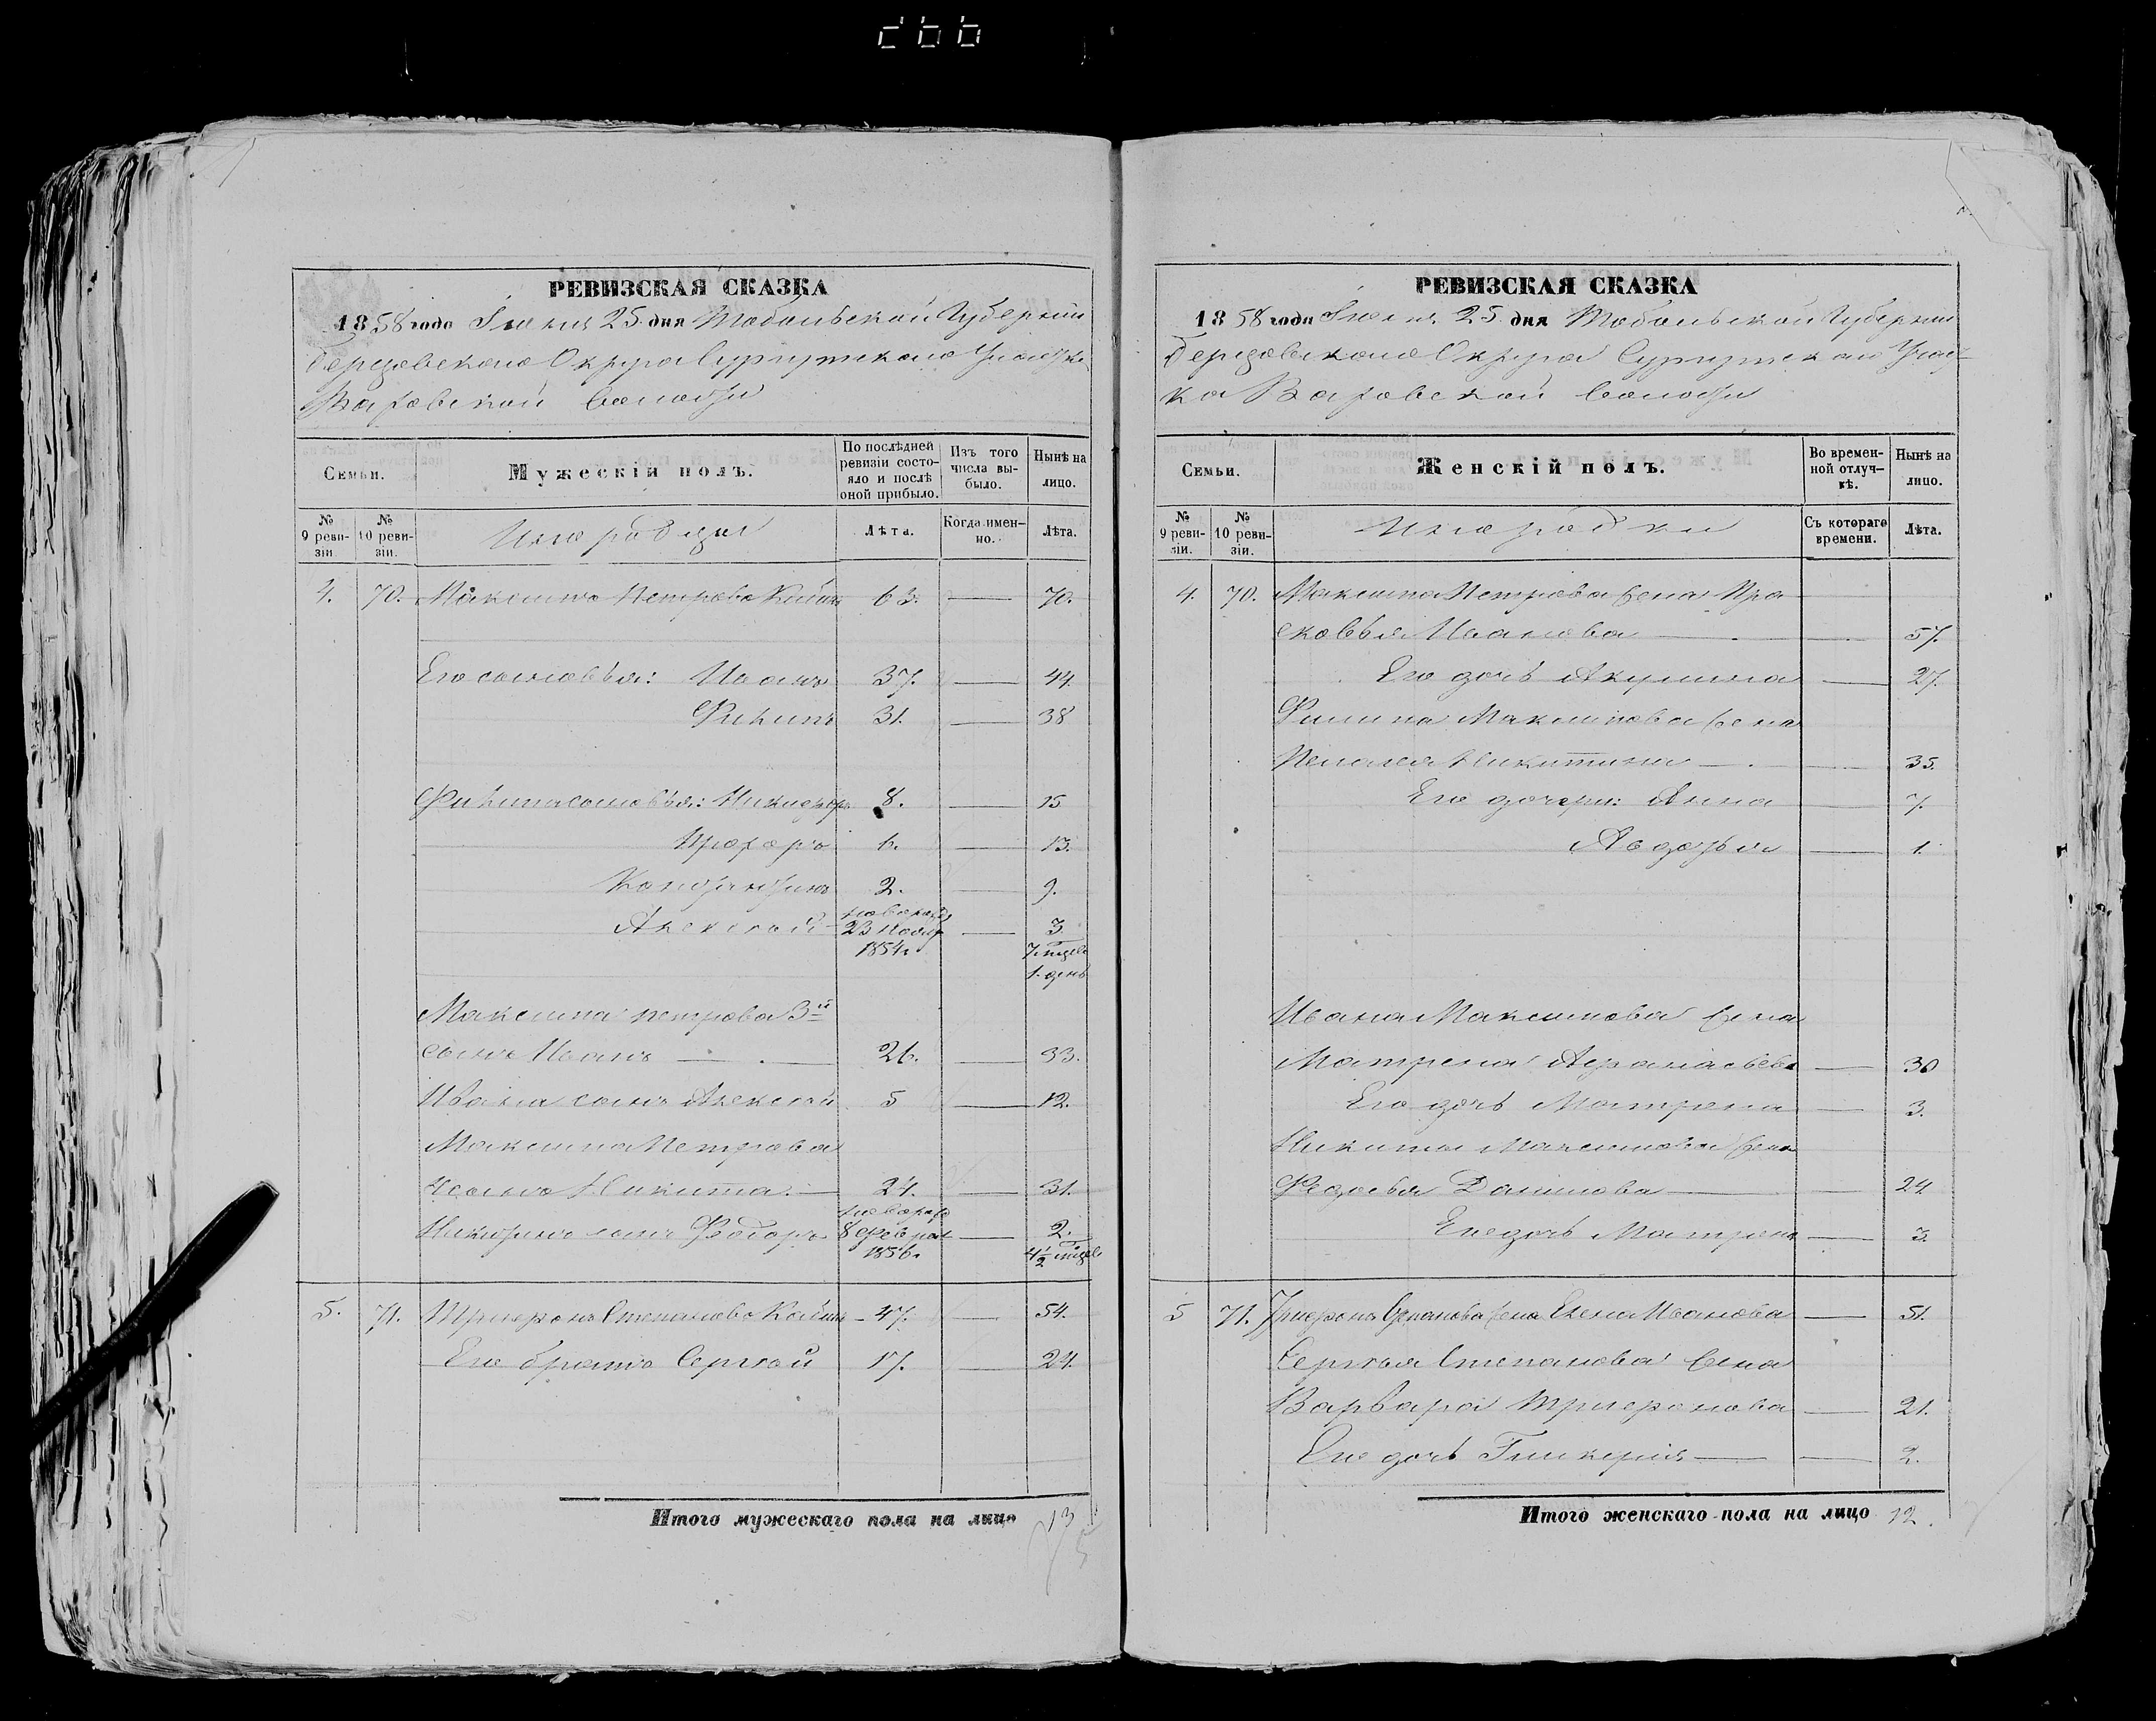 РЕВИЗСКАЯ СКАЗКА
1858 года Іюня 25 дня Тобольской Губерніи
Березовскаго Округа Сургутскаго Участка
Ваховской волости
Семьи.
Мужескій полъ.
По послѣдней ревизіи состояло и послѣ оной прибыло.
Изъ того числа выбыло.
Нынѣ на лицо.
№ 9 ревизіи.
№ 10 ревизіи.
Инородцы
Лѣта.
Когда именно.
Лѣта.
4. 70. Максимъ Петровъ 63. — 70.
Его сыновья: Иванъ 37. — 44.
Филипъ 31. — 38
Филипа сыновья: Никифоръ 8. — 15
Прохоръ 6. — 13.
Констянтинъ 2. — 9.
Алексѣй 23 1854 г. — 3. 1. день
Максима Петрова 3й
сынъ Иванъ — 26. — 33.
Ивана сынъ Алексѣй 5 — 12.
Максима Петрова
4 сынъ Никита — 24. — 31.
сынъ Федоръ 8 феврал 1856 г. — 2. 4 1/2
5. 71. Трифонъ Степановъ 47. — 54.
Его братъ Сергѣй 17. — 24.
Итого мужескаго пола на лицо 13
РЕВИЗСКАЯ СКАЗКА
1858 года Іюня 25 дня Тобольской Губерніи
Березовскаго Округа Сургутскаго Участ-
ка Ваховской волости
Семьи.
Женскій полъ.
Во временной отлучкѣ.
Нынѣ на лицо.
№ 9 ревизіи.
№ 10 ревизіи.
Инородки
Съ котораго времени.
Лѣта.
4. 70. Максима Петрова жена Пра
сковья Иванова — 57.
Его дочь Акулина — 27.
Филипа Максимова жена
Пелагея Никитина — 35.
Его дочери: Анна — 7.
Авдотья — 1.
Ивана Максимова жена
Матрена Афанасьева — 30
Его дочь Матрена — 3.
Никиты Максимова жена
Федосья Данилова — 24
Его дочь Матрена — 3.
5 71. Трифона Степанова жена Елена Иванова — 51.
Сергѣя Степанова жена
Варвара Трифонова — 21.
Его дочь Гликерія — 2.
Итого женскаго пола на лицо 12.